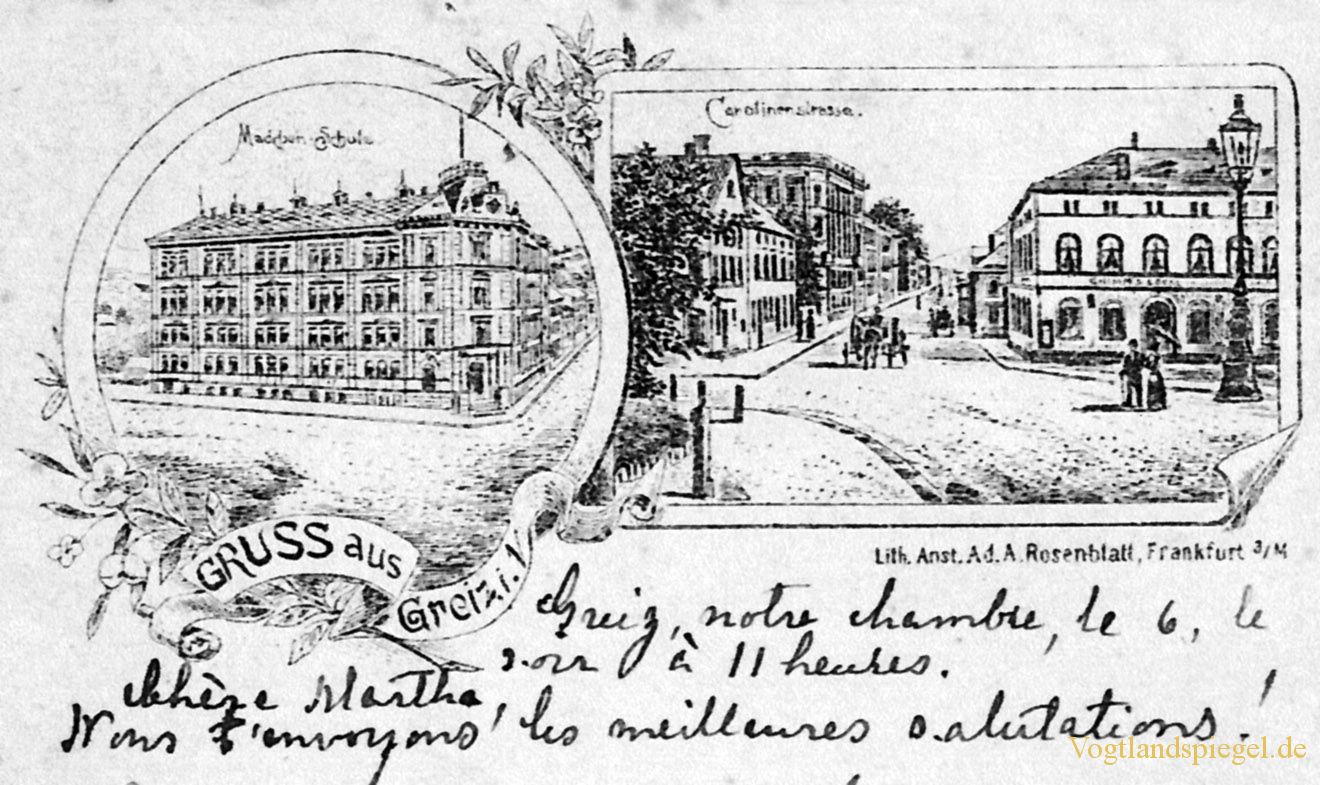 Mädchen-Schule.
Carolinenstrasse.
GRUSS aus
Greiz i. V
Lith. Anst. Ad. A. Rosenblatt, Frankfurt a/M
Greiz, notre chambre, le 6, le
soir à 11 heures.
Chère Martha,
Nous t'envoyons les meilleures salutations!
Vogtlandspiegel.de